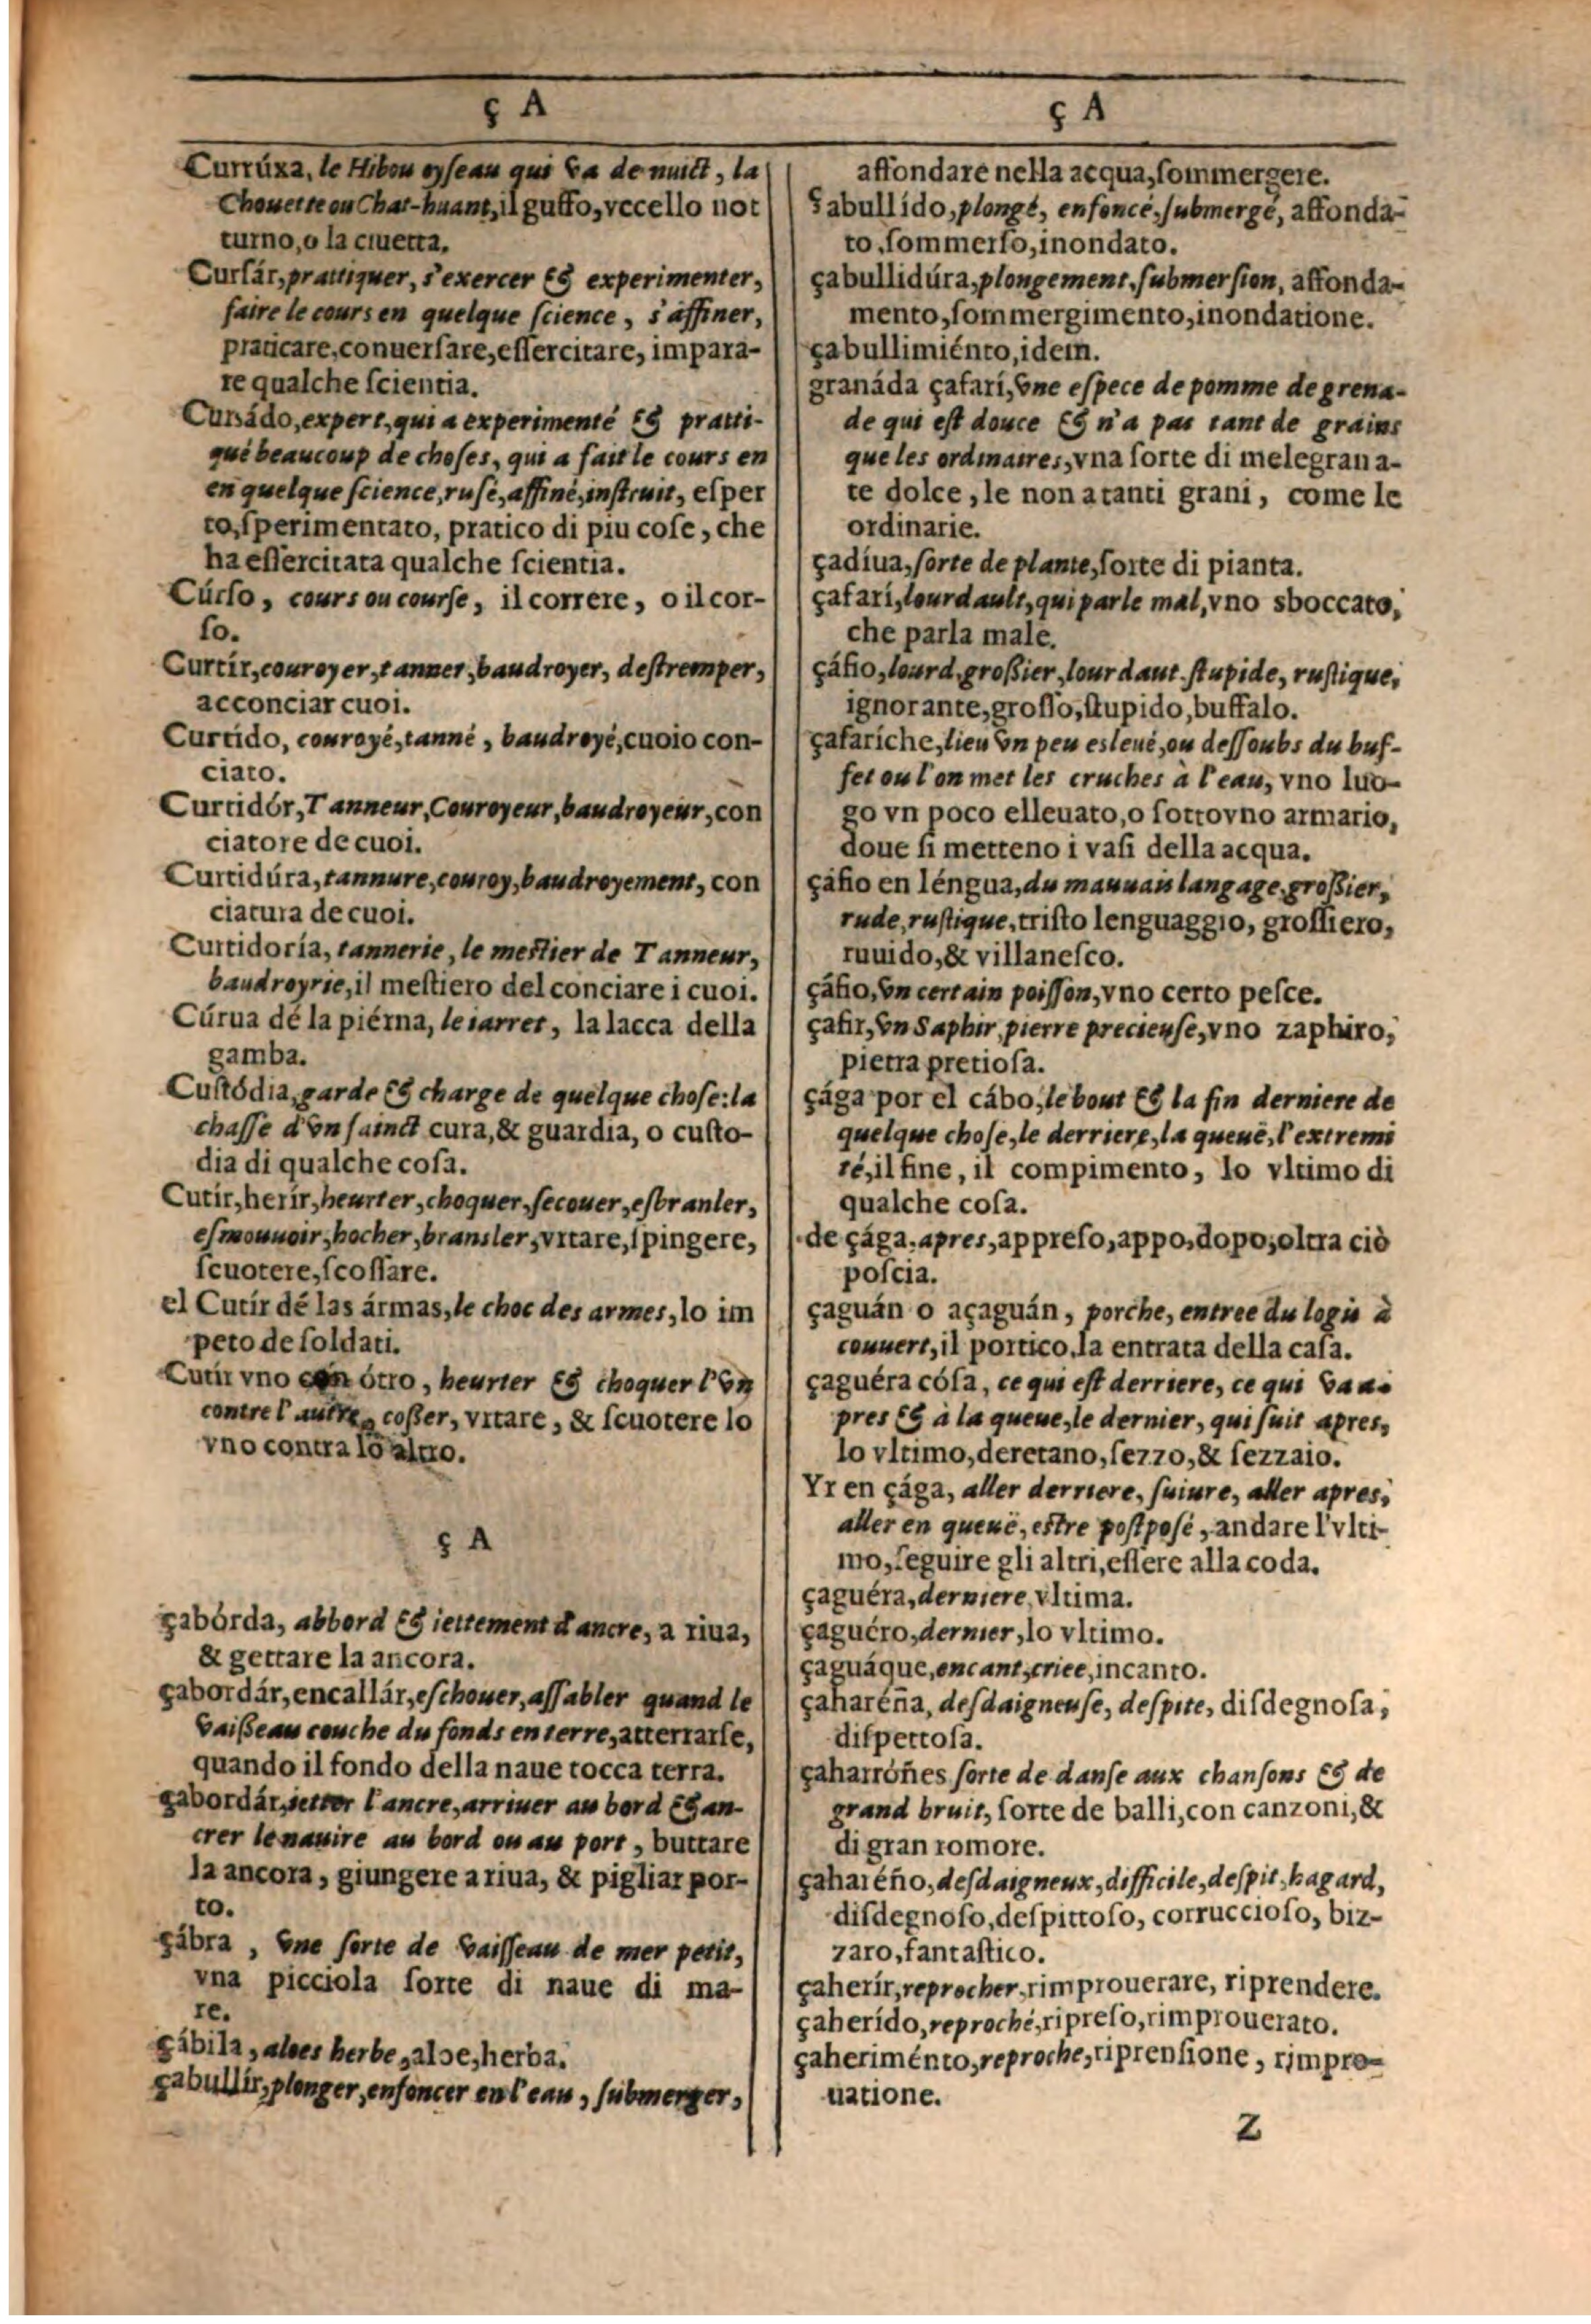 ç A
Currúxa, le Hibou oyſeau qui va de nuict, la
Chouette ou Chat-huant, il guffo, vccello not
turno, o la ciuetta.
Curſár, prattiquer, s'exercer & experimenter,
faire le cours en quelque ſcience, s'affiner,
praticare, conuerſare, eſſercitare, impara-
re qualche ſcientia.
Curſádo, expert, qui a experimenté & pratti-
qué beaucoup de choſes, qui a fait le cours en
en quelque ſcience, ruſé, affiné, inſtruit, eſper
to, ſperimentato, pratico di piu coſe, che
ha eſſercitata qualche ſcientia.
Cúrſo, cours ou courſe, il correre, o il cor-
ſo.
Curtír, couroyer, tanner, baudroyer, deſtremper,
acconciar cuoi.
Curtído, couroyé, tanné, baudroyé, cuoio con-
ciato.
Curtidór, Tanneur, Couroyeur, baudroyeur, con
ciatore de cuoi.
Curtidúra, tannure, couroy, baudroyement, con
ciatura de cuoi.
Curtidoría, tannerie, le meſtier de Tanneur,
baudroyrie, il meſtiero del conciare i cuoi.
Cúrua dé la piérna, le iarret, la lacca della
gamba.
Cuſtódia, garde & charge de quelque choſe: la
chaſſe d'vn ſainct cura, & guardia, o cuſto-
dia di qualche coſa.
Cutír, herír, heurter, choquer, ſecouer, eſbranler,
eſmouuoir, hocher, branſler, vrtare, ſpingere,
ſcuotere, ſcoſſare.
el Cutír dé las ármas, le choc des armes, lo im
peto de ſoldati.
Cutír vno con ótro, heurter & choquer l'vn
contre l'autre, coſſer, vrtare, & ſcuotere lo
vno contra lo altro.
ç A
çabórda, abbord & iettement d'ancre, a riua,
& gettare la ancora.
çabordár, encallár, eſchouer, aſſabler quand le
vaiſſeau couche du fonds en terre, atterrarſe,
quando il fondo della naue tocca terra.
çabordár, ietter l'ancre, arriuer au bord & an-
crer le nauire au bord ou au port, buttare
la ancora, giungere a riua, & pigliar por-
to.
çábra, vne ſorte de vaiſſeau de mer petit,
vna picciola ſorte di naue di ma-
re.
çábila, aloes herbe, aloe, herba.
çabullír, plonger, enfoncer en l'eau, ſubmerger,
ç A
affondare nella acqua, ſommergere.
çabullído, plongé, enfoncé, ſubmergé, affonda-
to, ſommerſo, inondato.
çabullidúra, plongement, ſubmerſion, affonda-
mento, ſommergimento, inondatione.
çabullimiénto, idem.
granáda çafarí, vne eſpece de pomme de grena-
de qui eſt douce & n'a pas tant de grains
que les ordinaires, vna ſorte di melegrana-
te dolce, le non a tanti grani, come le
ordinarie.
çadíua, ſorte de plante, ſorte di pianta.
çafarí, lourdault, qui parle mal, vno sboccato,
che parla male.
çáfio, lourd, groſſier, lourdaut, ſtupide, ruſtique,
ignorante, groſſo, ſtupido, buffalo.
çafaríche, lieu vn peu esleué, ou deſſoubs du buf-
fet ou l'on met les cruches à l'eau, vno luo-
go vn poco elleuato, o ſotto vno armario,
doue ſi metteno i vaſi della acqua.
çáfio en léngua, du mauuais langage, groſſier,
rude, ruſtique, triſto lenguaggio, groſſiero,
ruuido, & villaneſco.
çáfio, vn certain poiſſon, vno certo peſce.
çafir, vn Saphir, pierre precieuſe, vno zaphiro,
pietra pretioſa.
çága por el cábo, le bout & la fin derniere de
quelque choſe, le derriere, la queuë, l'extremi
té, il fine, il compimento, lo vltimo di
qualche coſa.
de çága, apres, appreſo, appo, dopo, oltra ciò
poſcia.
çaguán o açaguán, porche, entree du logis à
couuert, il portico, la entrata della caſa.
çaguéra cóſa, ce qui eſt derriere, ce qui va a-
pres & à la queue, le dernier, qui ſuit apres,
lo vltimo, deretano, ſezzo, & ſezzaio.
Yr en çága, aller derriere, ſuiure, aller apres,
aller en queuë, eſtre poſtpoſé, andare l'vlti-
mo, ſeguire gli altri, eſſere alla coda.
çaguéra, derniere, vltima.
çaguéro, dernier, lo vltimo.
çaguáque, encant, criee, incanto.
çaharéña, deſdaigneuſe, deſpite, diſdegnoſa,
diſpettoſa.
çaharróñes ſorte de danſe aux chanſons & de
grand bruit, ſorte de balli, con canzoni, &
di gran romore.
çaharéño, deſdaigneux, difficile, deſpit, hagard,
diſdegnoſo, deſpittoſo, corruccioſo, biz-
zaro, fantaſtico.
çaherír, reprocher, rimprouerare, riprendere.
çaherído, reproché, ripreſo, rimprouerato.
çaheriménto, reproche, riprenſione, rimpro-
uatione.
Z